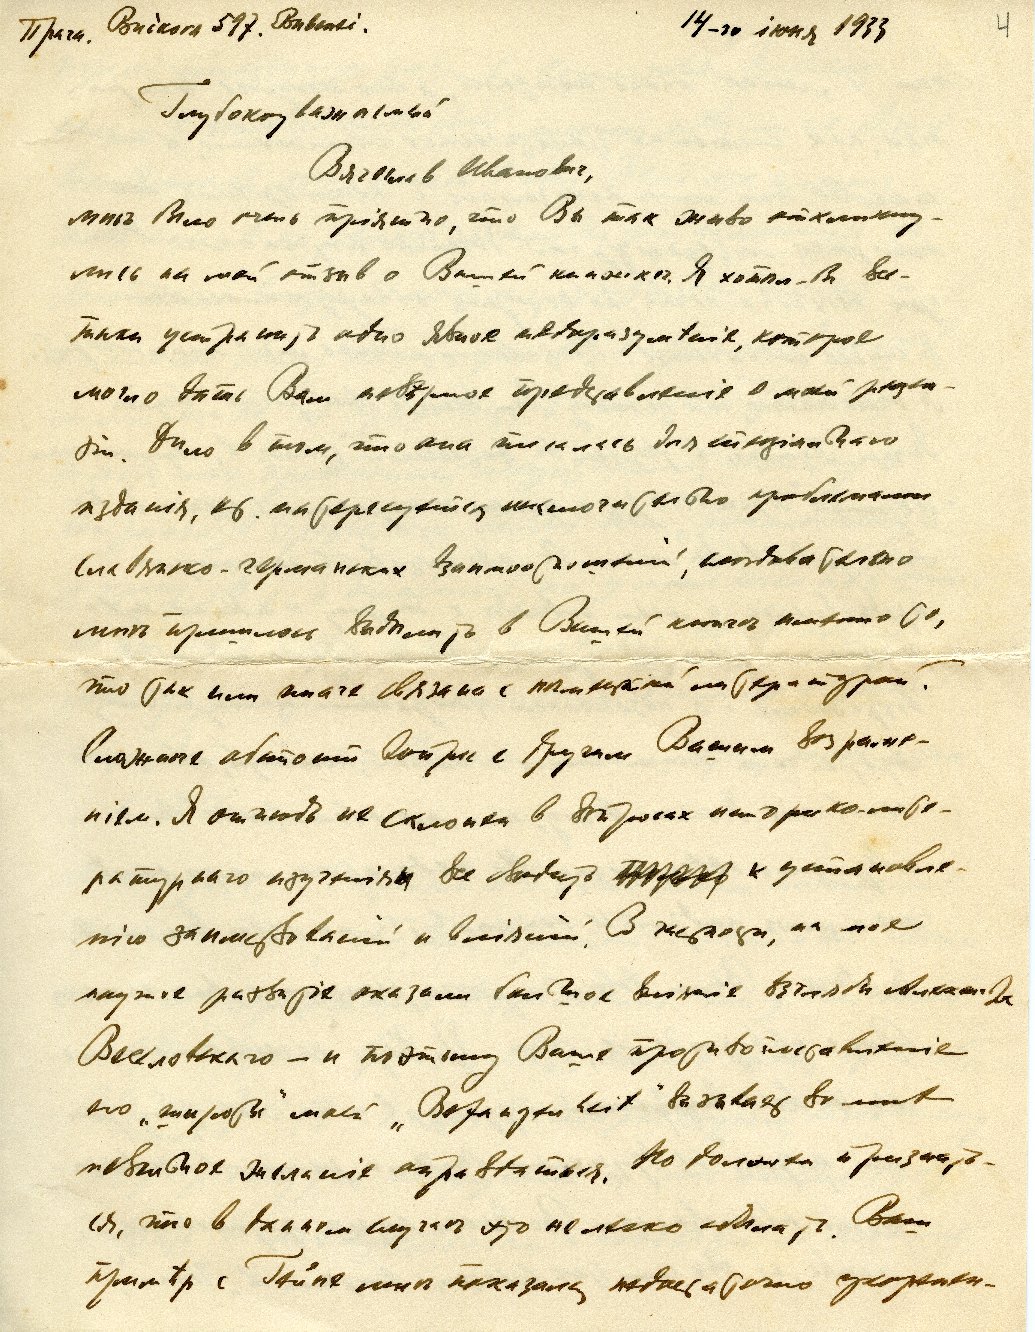 Прага. Вайкова 597. Bubeneč.
14-го iюня 1933
4
Глубокоуважаемый
Вячеслав Иванович,
мнѣ было очень прiятно, что Вы так живо откликну-
лись на мой отзыв о Вашей книжкѣ. Я хотѣл-бы все-
таки устранить одно явное недоразумѣнiе, которое
могло дать Вам невѣрное представленiе о моей рецен-
зiи. Дѣло в том, что она писалась для спецiальнаго
изданiя, интересующейся исключительно проблемами
славянско-германских взаимоотношенiй, слѣдовательно
мнѣ пришлось выдѣлить в Вашей книгѣ именно то,
что так или иначе связано с нѣмецкой литературой.
Сложнѣе обстоит вопрос с другим Вашим возраже-
нiем. Я отнюдь не склонен в вопросах историко-лите-
ратурнаго изученiя все сводить к установле-
нiю заимствованiй и влiянiй. В частности, на мое
научное развитiе оказали большое влiянiе взгляды Александра
Веселовскаго — и поэтому Ваше противопоставленiе
его „широты" моей „Befangenheit" вызывает во мнѣ
невольное желанiе оправдаться. Но должен признать-
ся, что в данном случаѣ это нелегко сдѣлать. Ваш
примѣр с Гейне мнѣ показался недостаточно